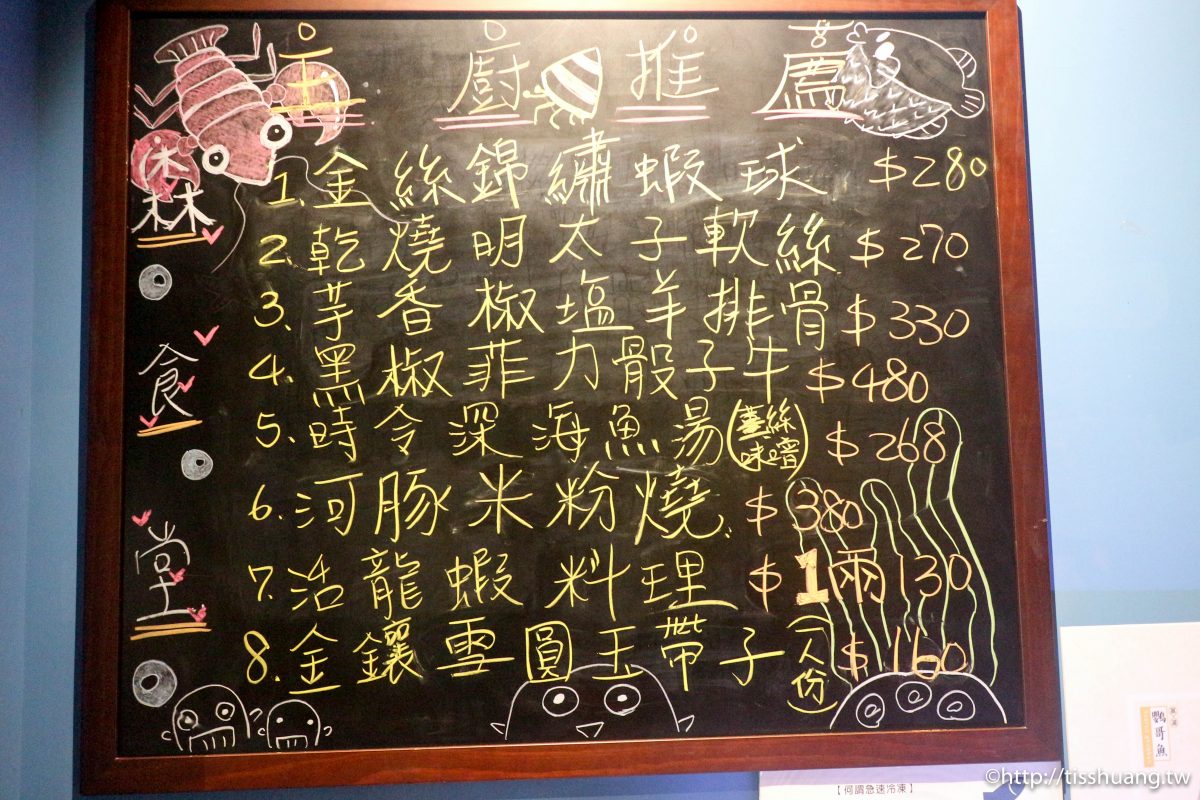 主廚推薦
森食堂
1. 金絲錦繡蝦球 $280
2. 乾燒明太子軟絲 $270
3. 芋香椒塩羊排骨 $330
4. 黑椒菲力骰子牛 $480
5. 時令深海魚湯(薑絲味噌) $268
6. 河豚米粉燒. $380
7. 活龍蝦料理 $1兩130
8. 金鑲雪圓玉帶子(一人份) $160
鸚哥魚
【何謂急速冷凍】
©http://tisshuang.tw